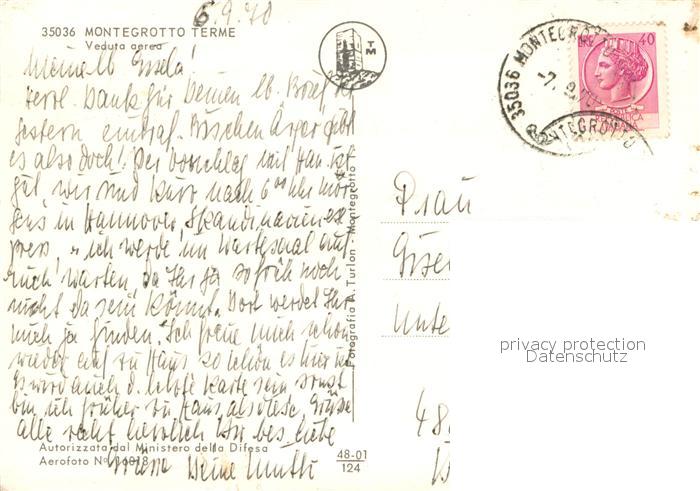 6.9.70
35036 MONTEGROTTO TERME
Veduta aerea
TM
35036 MONTEGRO
MONTEGROTTO
LIRE 40
POSTE
REPUBBLICA
ITALIANA
Meine lb. Gisela!
Herzl. Dank für Deinen lb. Brief
gestern eintraf. Bischen Ärger gibt
es also doch! Der Vorschlag mit Hann. ist
gut, wir sind kurz nach 6 00 Uhr Mor-
gens in Hannover, Skandinavienex-
press, ich werde im Wartesaal auf
Euch warten da Ihr ja so früh noch
nicht da sein könnt. Dort werdet Ihr
mich ja finden. Ich freue mich schon
wieder auf zu Haus so schön es hier ist
Es wird auch d. letzte Karte sein sonst
bin ich früher zu Haus als diese. Grüße
alle recht herzlich
Deine Mutti
Autorizzata dal Ministero della Difesa
Aerofoto No
48-01
124
Fotografia A. Turlon - Montegrotto
Frau
Gise
Unte
48
privacy protection
Datenschutz